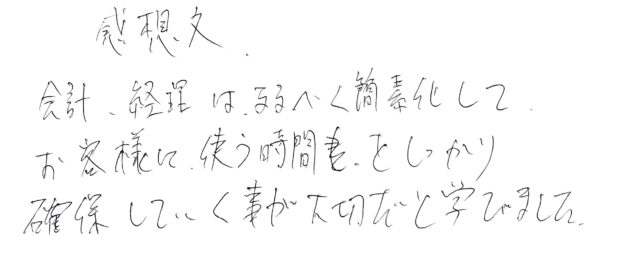 感想文
会計、経理は、なるべく簡素化して
お客様に、使う時間をしっかり
確保していく事が大切だと学びました。